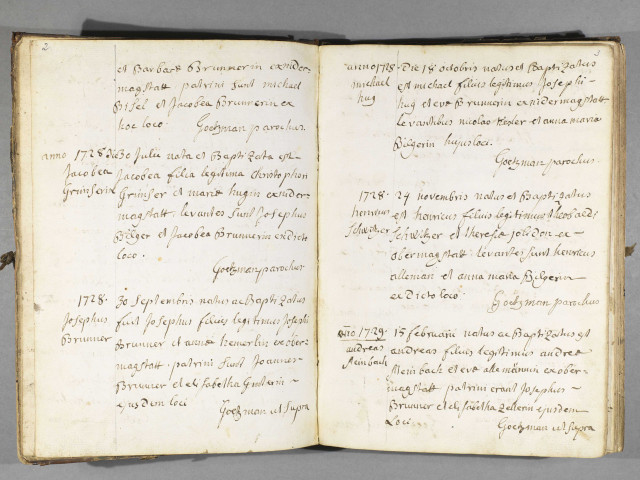 2
et Barbarae Brunnerin ex nider-
magstatt patrini sunt michael
Bisel et Jacobea Brunnerin ex
hoc loco. Goetzman parochus.
anno 1728 die 30 Julii nata et Baptizata est
Jacobea Jacobea filia legitima Christophori
Grünserin Grünser et mariae hugin ex nider-
magstatt, levantes sunt Josephus
Bilger et Jacobea Brunnerin ex dicto
loco.
Goetzman parochus
1728. 30 Septembris natus ac Baptizatus
Josephus fuit Josephus filius legitimus Josephi
Brunner Brunner et annae hemerlin ex ober-
magstatt. patrini sunt Joannes
Brunner et elisabetha Guterin
ejusdem loci Goetzman ut supra
3
anno 1728. Die 18 octobris natus et Baptizatus
michael est michael filius legitimus Josephi
hug hug et evae Brunnerin ex nidermagstatt
levantibus nicolao Kesler et anna maria
Bilgerin hujus loci.
Goetzman parochus.
1728. 24 novembris natus et Baptizatus
henricus est henricus filius legitimus theobaldi
Schwitzer Schwitzer et theresae jolidon ex
obermagstatt. levantes sunt henricus
alleman et anna maria Bilgerin
ex Dicto loco. Goetzman parochus
ano 1729. 15 februarii natus ac Baptizatus est
andreas andreas filius legitimus andreae
Steinbach Steinbach et evae allemännin ex ober-
magstatt patrini erant Josephus
Brunner et elisabetha Zellerin ejusdem
Loci. Goetzman ut supra